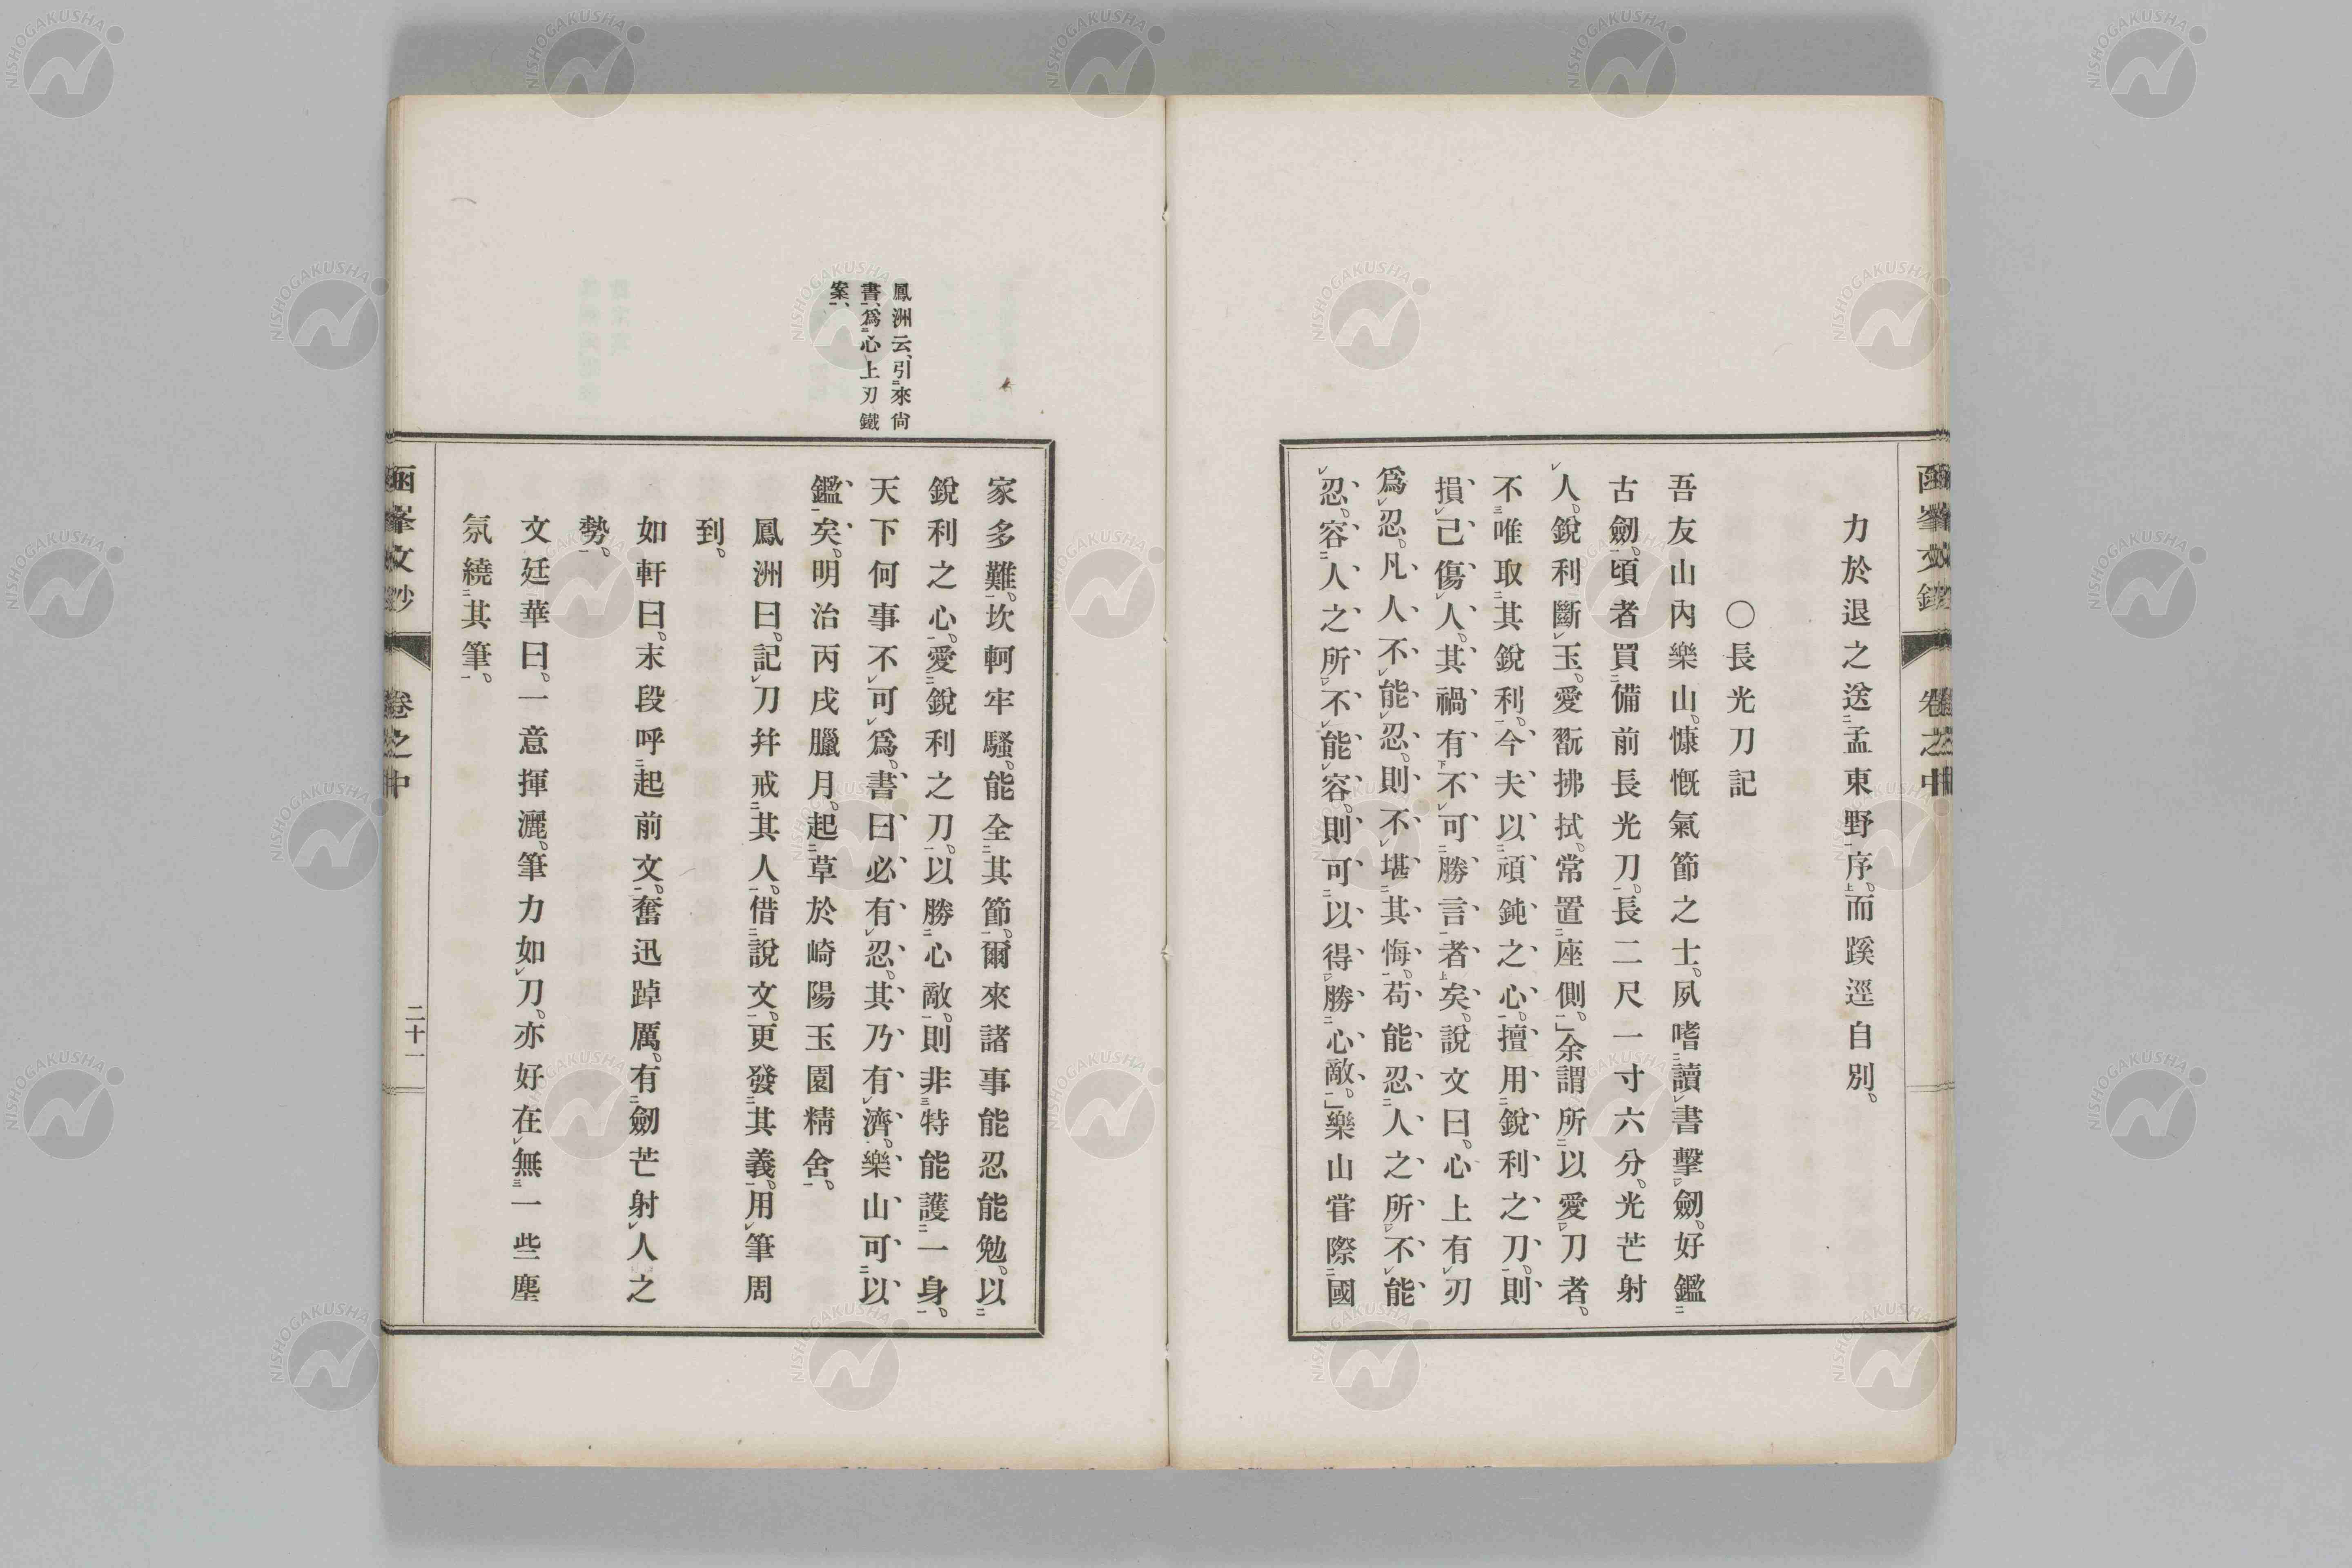 力於退之送孟東野序。而蹊逕自別。
〇長光刀記
吾友山內樂山。慷慨氣節之士。夙嗜讀書擊劒。好鑑
古劒。頃者買備前長光刀。長二尺一寸六分。光芒射
人。銳利斷玉。愛翫拂拭。常置座側。」余謂所以愛刀者。
不唯取其銳利。今夫以頑鈍之心。擅用銳利之刀。則
損己傷人。其禍有不可勝言者矣。說文曰。心上有刃
爲忍。凡人不能忍。則不堪其悔。苟能忍人之所不能
忍。容人之所不能容。則可以得勝心敵。」樂山嘗際國
家多難。坎軻牢騷。能全其節。爾來諸事能忍能勉。以
銳利之心。愛銳利之刀。以勝心敵。則非特能護一身。
天下何事不可爲。書曰必有忍。其乃有濟。樂山可以
鑑矣。明治丙戌臘月。起草於崎陽玉園精舍。
鳳洲曰。記刀幷戒其人。借說文。更發其義。用筆周
到。
如軒曰。末段呼起前文。奮迅踔厲。有劒芒射人之
勢。
文廷華曰。一意揮灑。筆力如刀。亦好在無一些塵
氛繞其筆。
鳳洲云、引來尙
書、爲心上刃鐵
案、
函峯文鈔
卷之中
二十一
函峯文鈔
卷之中
NISHOGAKUSHA